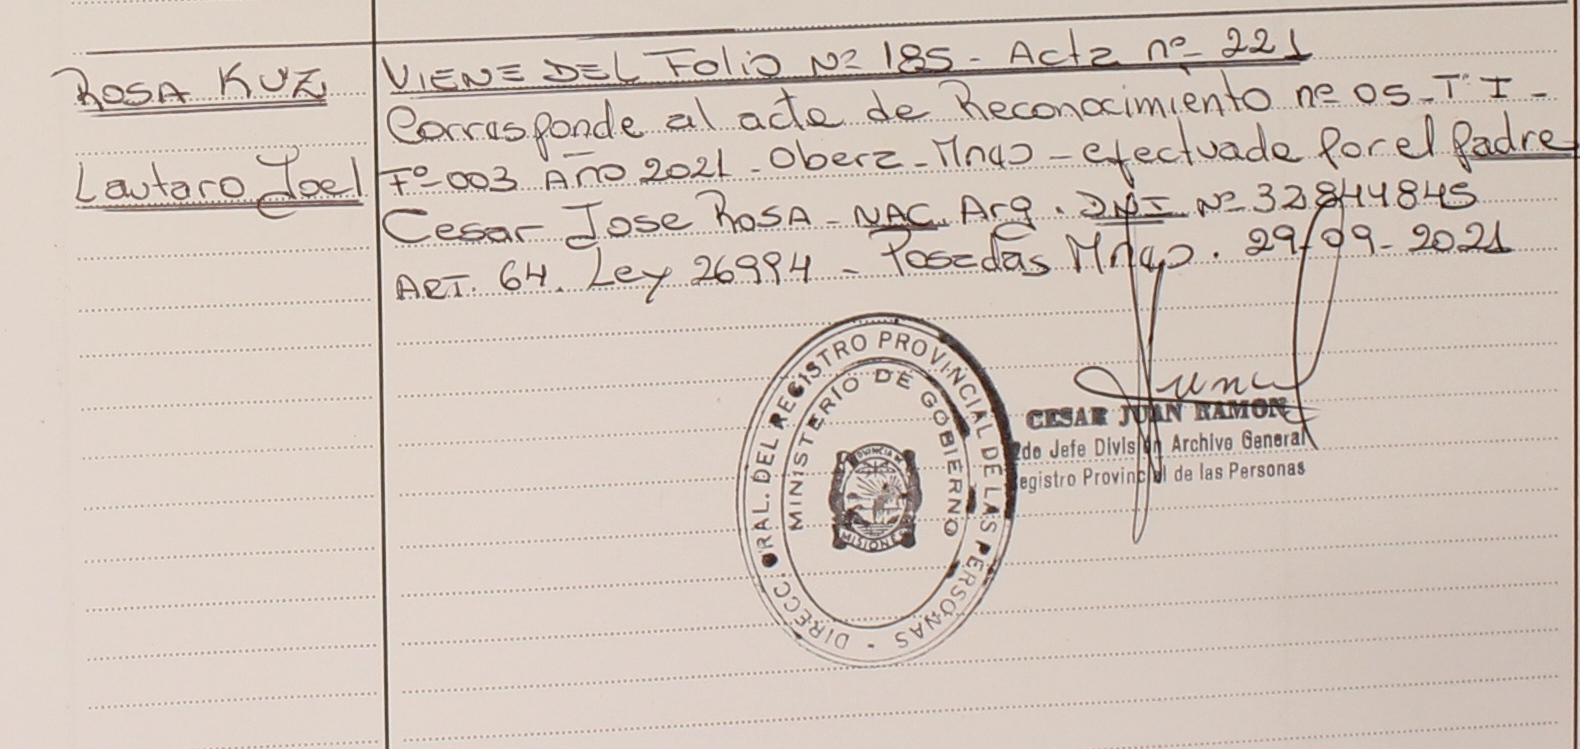 ROSA KUZ
Lautaro Joel
VIENE DEL Folio Nº 185 - Acta nº 221
Corresponde al acta de Reconocimiento nº 05 - Tº I -
Fº-003 AÑO 2021 - Obera - Mnes - efectuada por el padre
Cesar Jose ROSA - NAC. Arg. DNI Nº 32844845
ART. 64. Ley 26994 - Posadas Mnes. 29-09-2021
DIRECC. GRAL. DEL REGISTRO PROVINCIAL DE LAS PERSONAS -
MINISTERIO DE GOBIERNO
PROVINCIA DE
MISIONES
CESAR JUAN RAMON
2do Jefe División Archivo General
Registro Provincial de las Personas